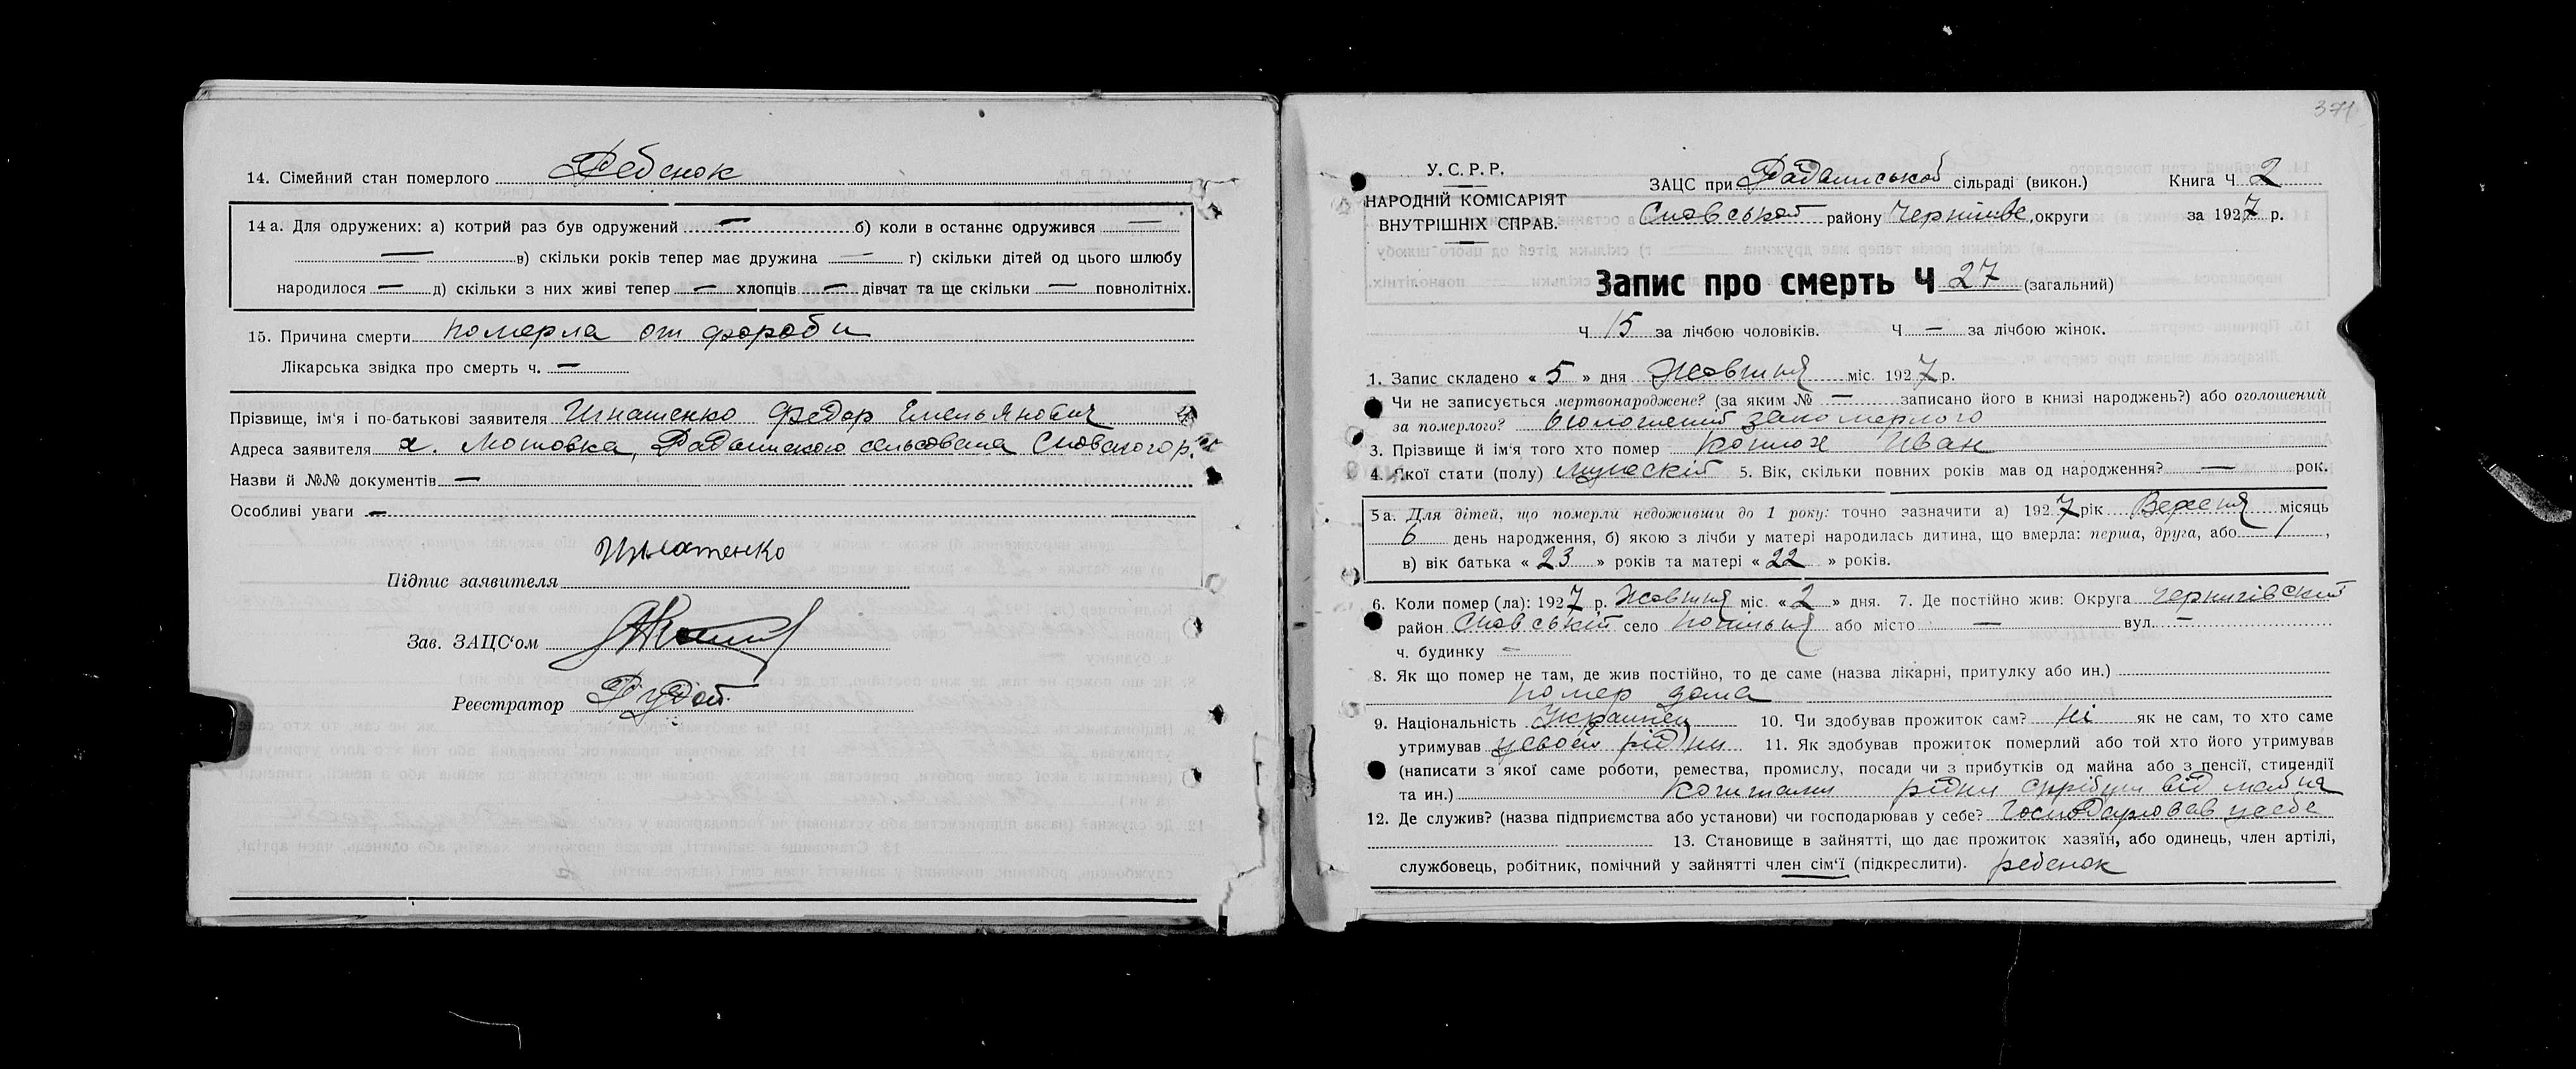 14. Сімейний стан померлого Ребенок
14 а. Для одружених: а) котрий раз був одружений — б) коли в останнє одружився —
— в) скільки років тепер має дружина — г) скільки дітей од цього шлюбу
народилося — д) скільки з них живі тепер — хлопців — дівчат та ще скільки — повнолітніх.
15. Причина смерти померла от фороби
Лікарська звідка про смерть ч. —
Прізвище, ім'я і по-батькові заявителя Игнатенко Федор Емельянович
Адреса заявителя х. Мотовка, сельсовета Сновского р.
Назви й №№ документів —
Особливі уваги —
Игнатенко
Підпис заявителя
Зав. ЗАЦС'ом
Реєстратор Рудой
371
У. С. Р. Р.
НАРОДНІЙ КОМІСАРІЯТ
ВНУТРІШНІХ СПРАВ.
ЗАЦС при сільраді (викон.) Книга Ч 2
Сновській району Чернігівс. округи за 1927 р.
Запис про смерть Ч 27 (загальний)
Ч 15 за лічбою чоловіків. Ч — за лічбою жінок.
1. Запис складено « 5 » дня Жовтня міс. 1927 р.
Чи не записується мертвонароджене? (за яким № — записано його в книзі народжень?) або оголошений
за померлого? за померлого
3. Прізвище й ім'я того хто помер Иван
4. Якої стати (полу) 5. Вік, скільки повних років мав од народження? — рок.
5 а. Для дітей, що померли недоживши до 1 року: точно зазначити а) 1927 рік Вересня місяць
6 день народження, б) якою з лічби у матері народилась дитина, що вмерла: перша, друга, або 1,
в) вік батька « 23 » років та матері « 22 » років.
6. Коли помер (ла): 1927 р. Жовтня міс. « 2 » дня. 7. Де постійно жив: Округа Чернигівский
район Сновській село або місто — вул. —
ч. будинку —
8. Як що помер не там, де жив постійно, то де саме (назва лікарні, притулку або ин.)
помер дома
9. Національність Украинец 10. Чи здобував прожиток сам? ні як не сам, то хто саме
утримував у своей рідни 11. Як здобував прожиток померлий або той хто його утримував
(написати з якої саме роботи, ремества, промислу, посади чи з прибутків од майна або з пенсії, стипендії
та ин.) рідни від майна
12. Де служив? (назва підприємства або установи) чи господарював у себе? Господарював у себе
13. Становище в зайнятті, що дає прожиток хазяїн, або одинець, член артілі,
службовець, робітник, помічний у зайнятті член сім'ї (підкреслити). ребенок